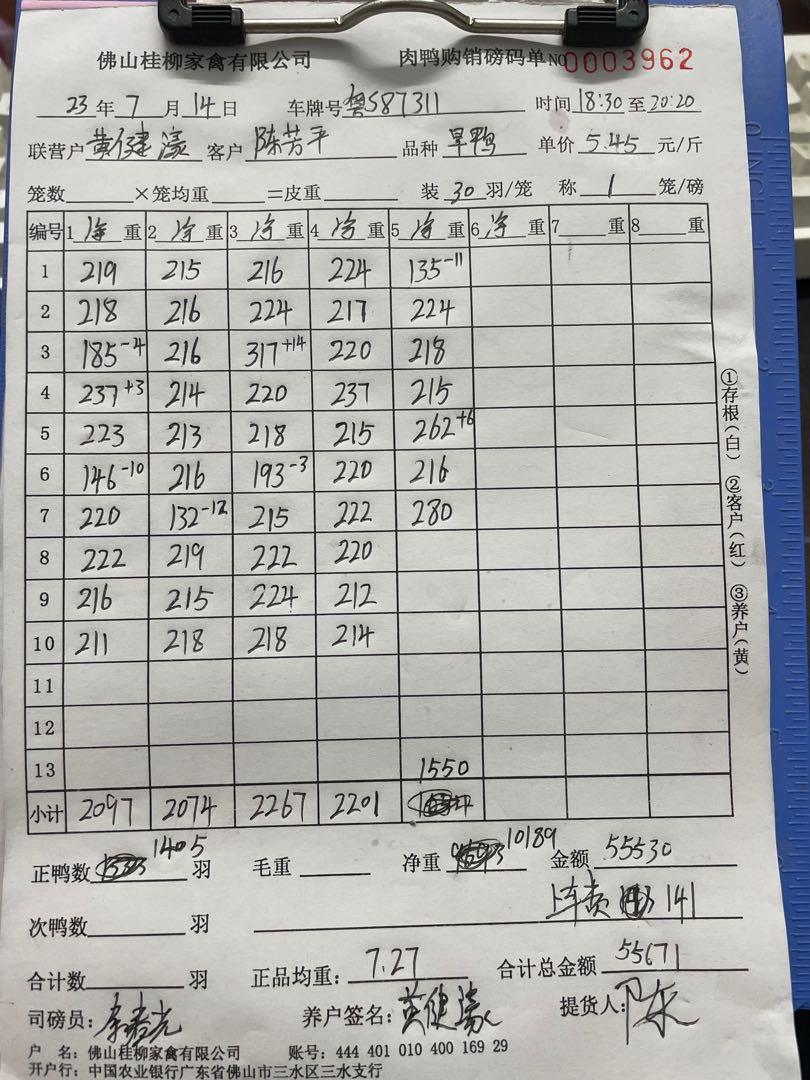 佛山桂柳家禽有限公司 肉鸭购销磅码单 NO 0003962
23年 7月 14日 车牌号 粤S87311 时间 18:30 至 20:20
联营户 黄健濠 客户 陈芳平 品种 旱鸭 单价 5.45 元/斤
笼数 ×笼均重 =皮重 装 30 羽/笼 称 1 笼/磅
编号 1 净 重 2 净 重 3 净 重 4 净 重 5 净 重 6 净 重 7 重 8 重
1 219 215 216 224 135-11
2 218 216 224 217 224
3 185-4 216 317+14 220 218
4 237+3 214 220 237 215
5 223 213 218 215 262+6
6 146-10 216 193-3 220 216
7 220 132-12 215 222 280
8 222 219 222 220
9 216 215 224 212
10 211 218 218 214
11
12
13 1550
小计 2097 2074 2267 2201
正鸭数 1405 羽 毛重 净重 10189 金额 55530
上车费 141
次鸭数 羽
合计数 羽 正品均重: 7.27 合计总金额 55671
司磅员: 养户签名: 黄健濠 提货人:
户 名: 佛山桂柳家禽有限公司 账号: 444 401 010 400 169 29
开户行: 中国农业银行广东省佛山市三水区三水支行
①存根(白) ②客户(红) ③养户(黄)